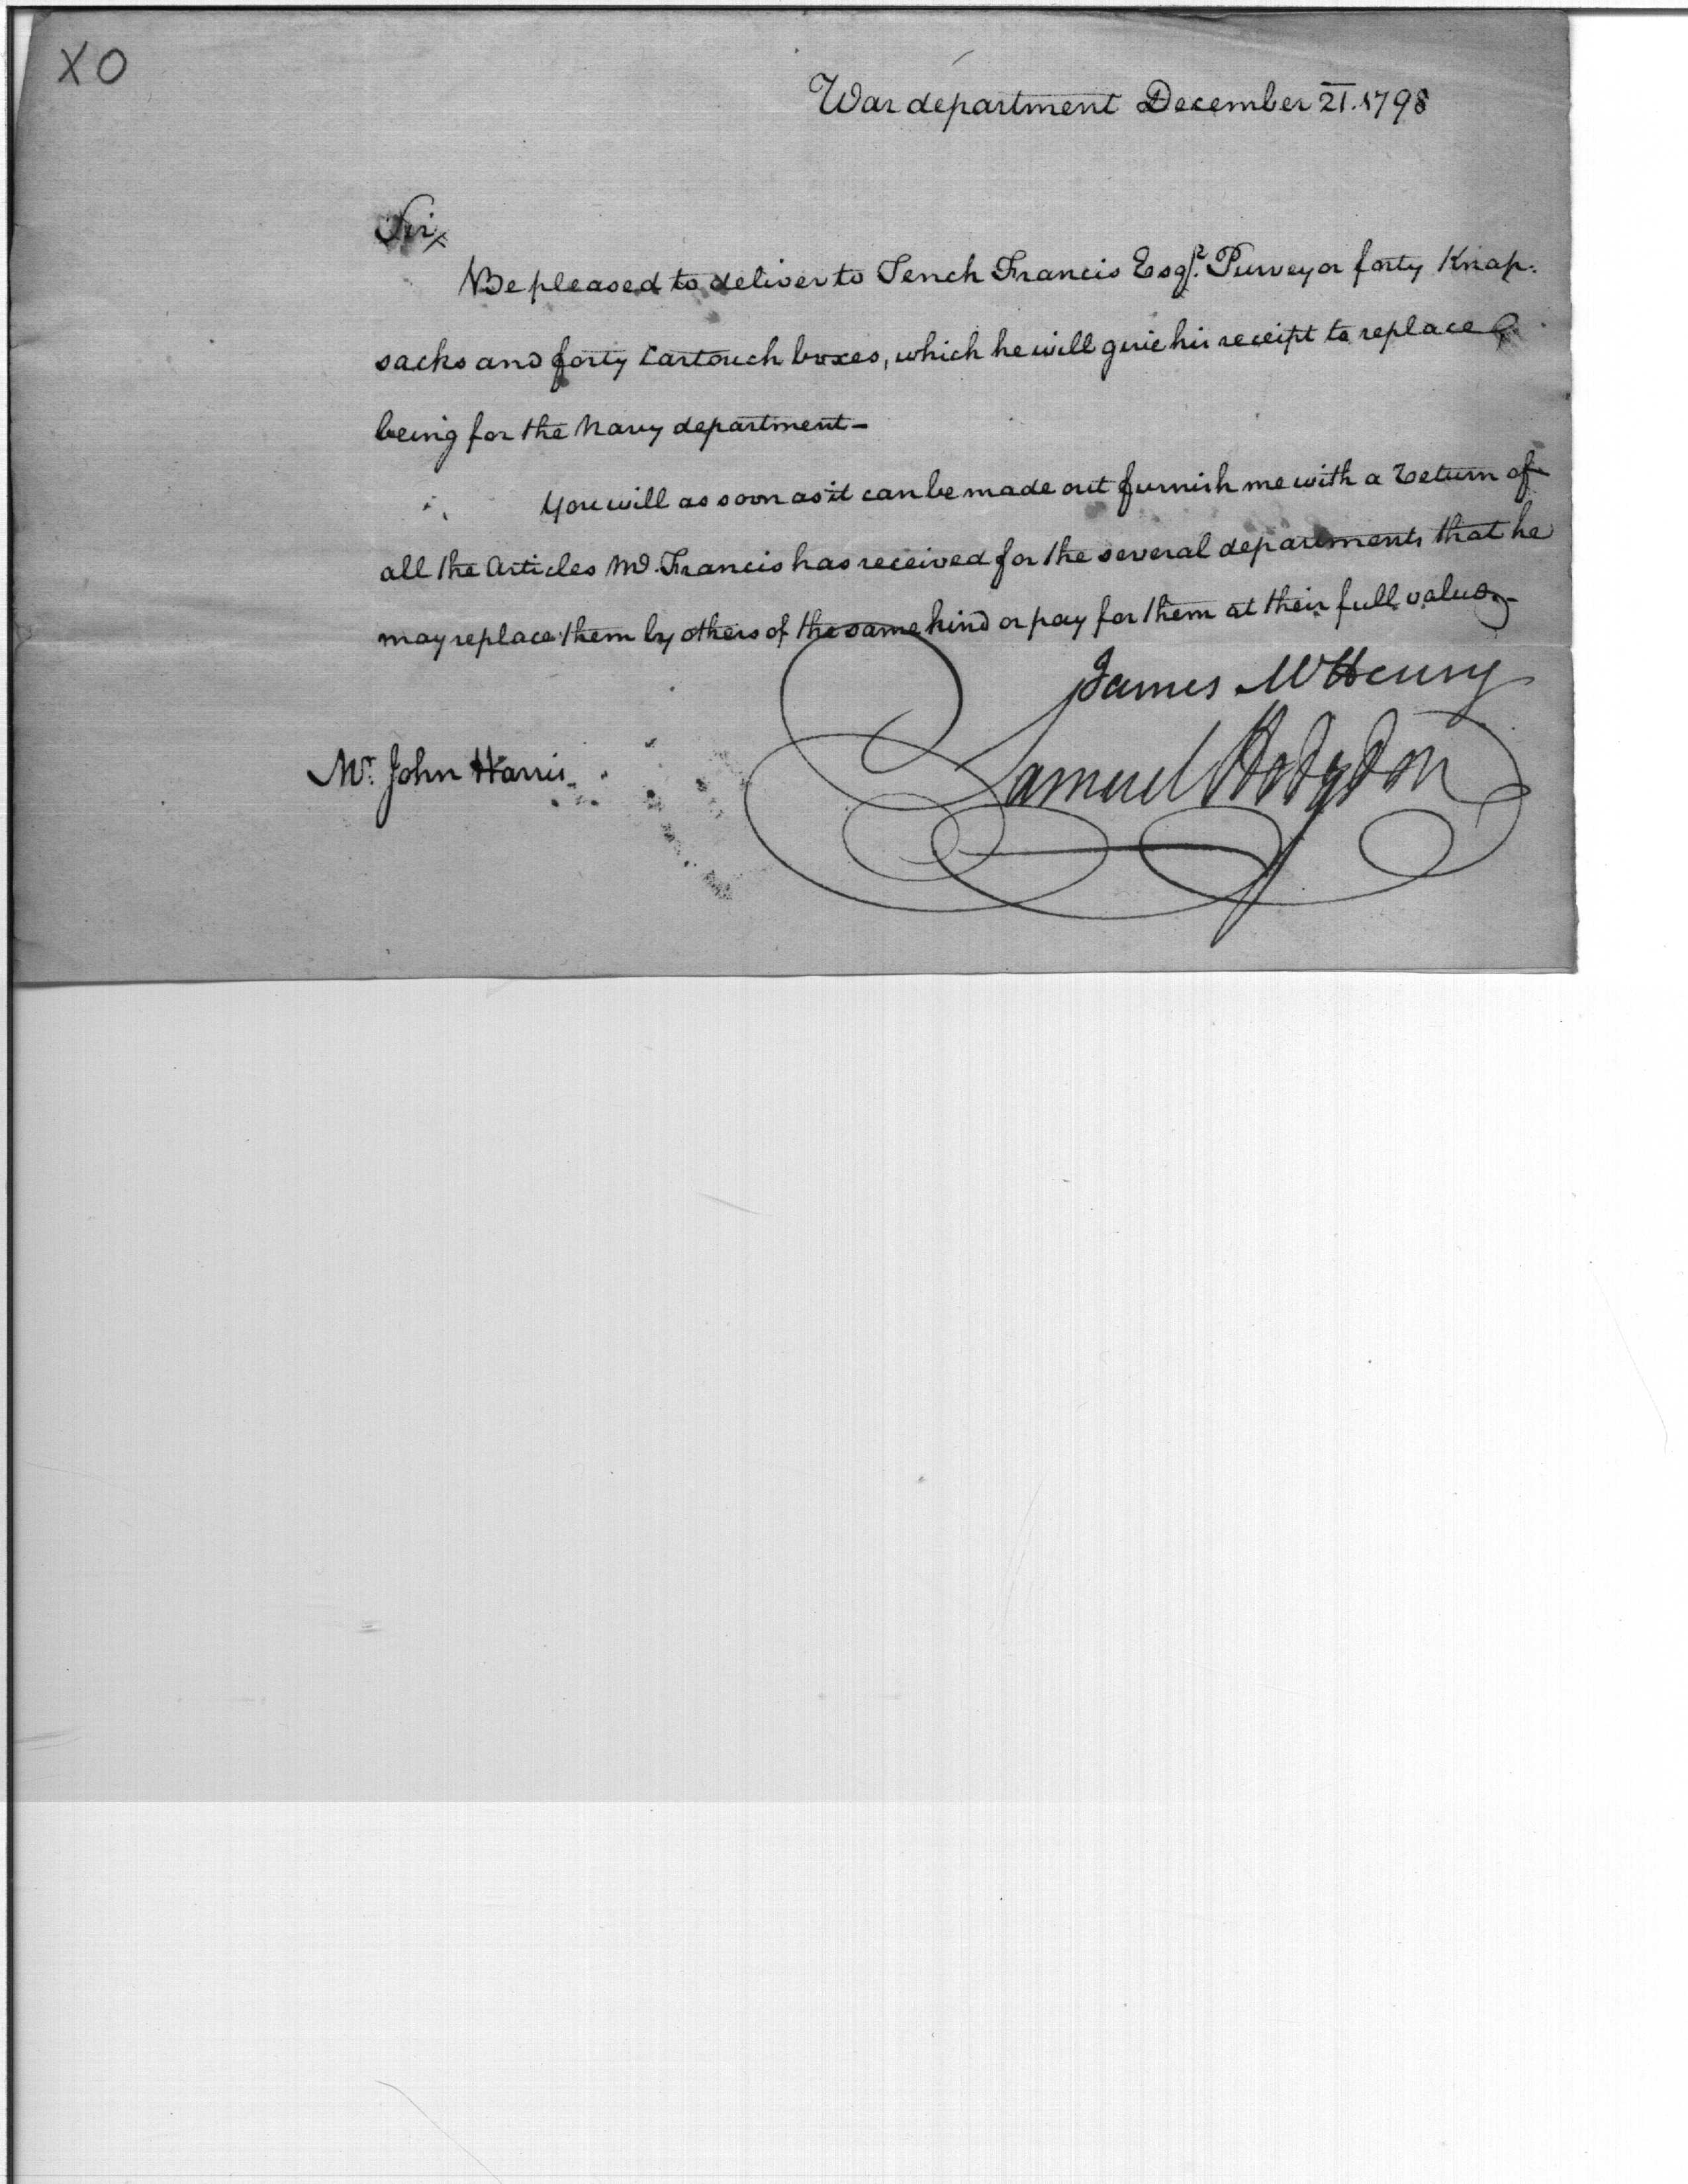 XO
War department December 21. 1798
Sir,
Be pleased to deliver to Tench Francis Esqr. Purveyor forty Knap-
sacks and forty Cartouch boxes, which he will give his receipt to replace
being for the Navy department-
You will as soon as it can be made out furnish me with a Return of
all the Articles Mr. Francis has received for the several departments that he
may replace them by others of the same kind or pay for them at their full value.-
James McHenry
Samuel Hodgdon
Mr. John Harris